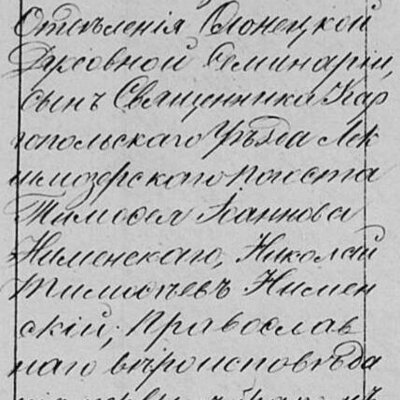 Отдѣленія Олонецкой
Духовной Семинаріи,
сынъ Священника Кар
гопольскаго Уѣзда Лек
шмозерскаго погоста
Тимофея Іоаннова
Нименскаго, Николай
Тимофѣевъ Нимен
скій, Православ
наго вѣроисповѣда